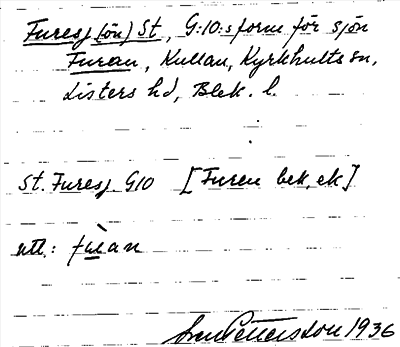 Furesj(ön) St, G:10:s form för sjön
Furan, Kullan, Kyrkhults sn,
Listers hd, Blek. l.
St. Furesj. G10 [Furen bek, ek]
utt.: fùran
Pettersson 1936